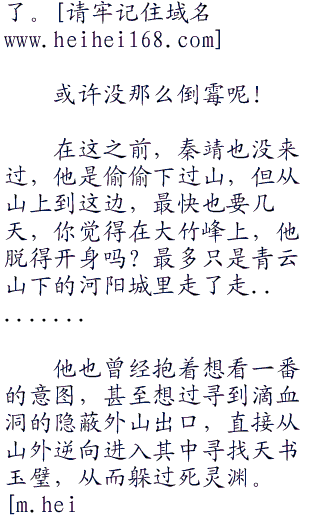 了。[请牢记住域名
www.heihei168.com]
或许没那么倒霉呢！
在这之前，秦靖也没来
过，他是偷偷下过山，但从
山上到这边，最快也要几
天，你觉得在大竹峰上，他
脱得开身吗？最多只是青云
山下的河阳城里走了走..
.......
他也曾经抱着想看一番
的意图，甚至想过寻到滴血
洞的隐蔽外山出口，直接从
山外逆向进入其中寻找天书
玉璧，从而躲过死灵渊。
[m.hei